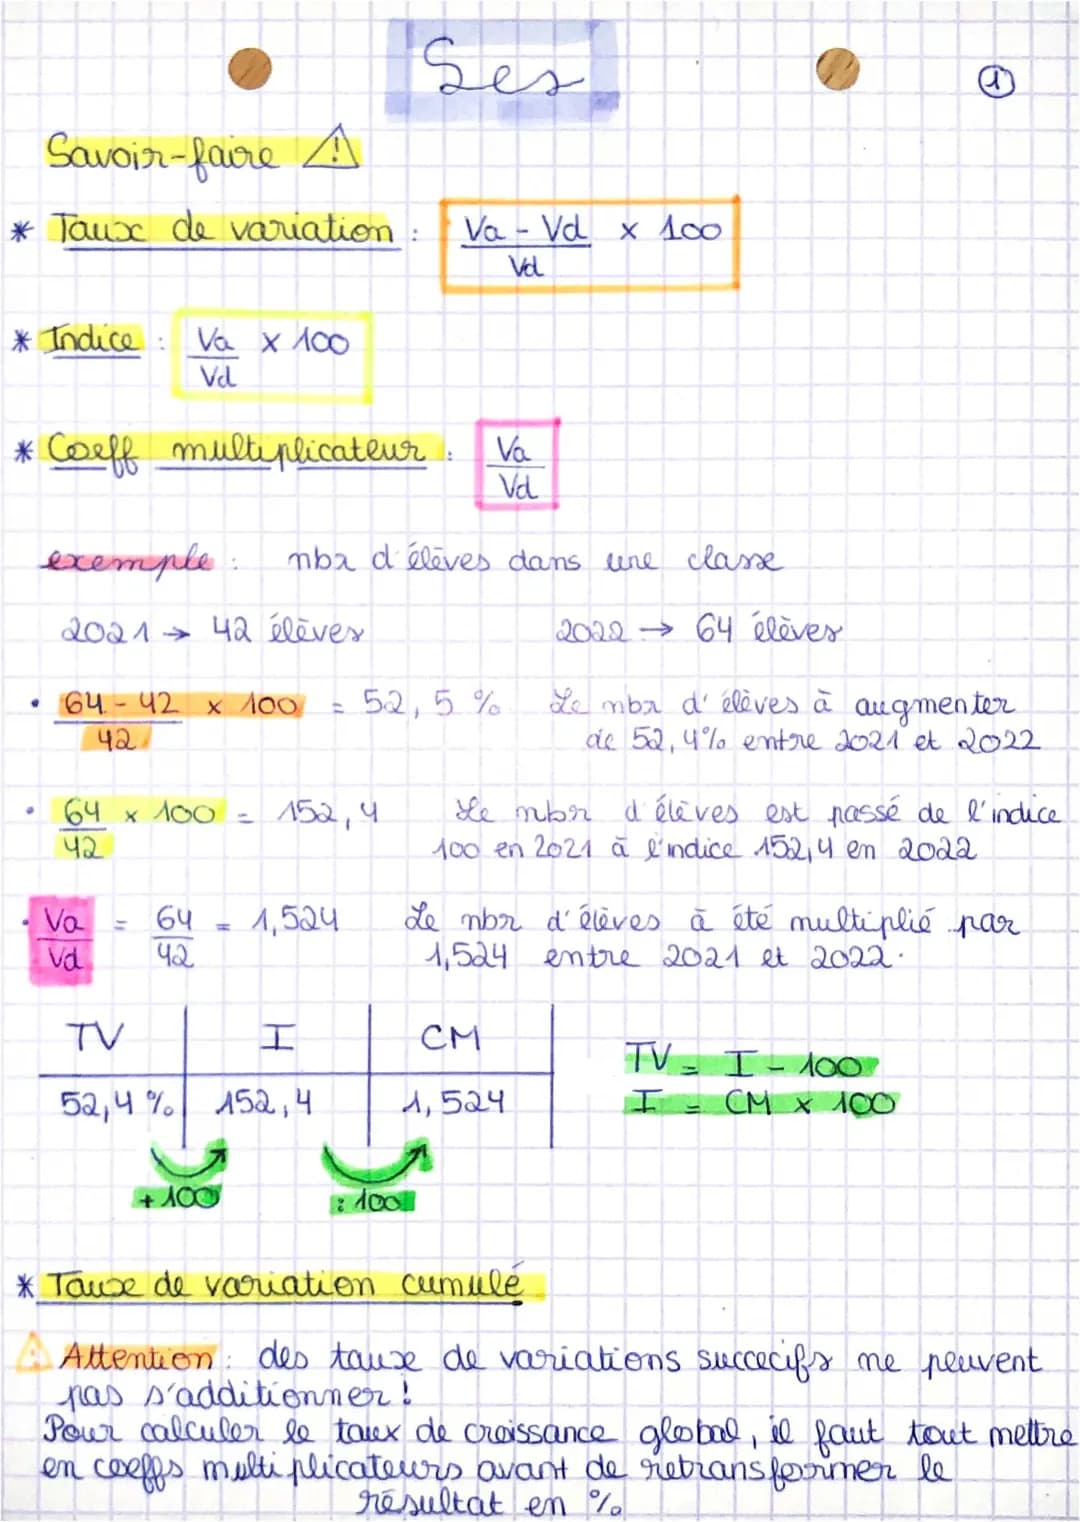 Ses
1
Savoir-faire ⚠
* Taux de variation : Va - Vd / Vd x 100
* Indice : Va / Vd x 100
* Coeff multiplicateur : Va / Vd
exemple : nbr d'élèves dans une classe
2021 → 42 élèves 2022 → 64 élèves
• 64 - 42 / 42 x 100 = 52,5 % Le nbr d'élèves à augmenter
de 52,4% entre 2021 et 2022
• 64 / 42 x 100 = 152,4 Le nbr d'élèves est passé de l'indice
100 en 2021 à l'indice 152,4 en 2022
• Va / Vd = 64 / 42 = 1,524 Le nbr d'élèves à été multiplié par
1,524 entre 2021 et 2022.
TV I CM
52,4 % 152,4 1,524
+ 100 : 100
TV = I - 100
I = CM x 100
* Taux de variation cumulé
⚠ Attention : des taux de variations succecifs ne peuvent
pas s'additionner !
Pour calculer le taux de croissance global, il faut tout mettre
en coeffs multiplicateurs avant de retransformer le
résultat en %